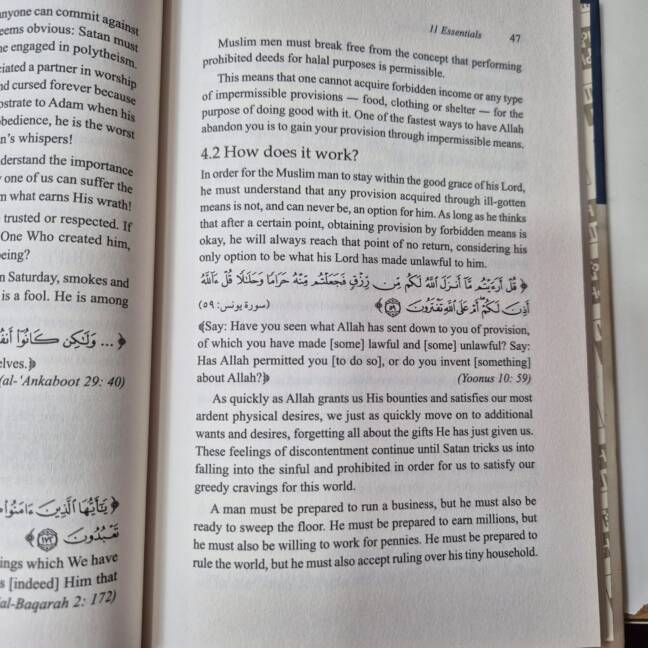 anyone can commit against
eems obvious: Satan must
e engaged in polytheism.
ciated a partner in worship
nd cursed forever because
ostrate to Adam when his
bedience, he is the worst
n's whispers!
derstand the importance
one of us can suffer the
m what earns His wrath!
trusted or respected. If
One Who created him,
eing?
n Saturday, smokes and
is a fool. He is among
﴿... وَلَـٰكِن كَانُوٓا۟ أَنفُ
elves.﴾
(al-'Ankaboot 29: 40)
﴿ يَـٰٓأَيُّهَا ٱلَّذِينَ ءَامَنُوا۟
تَعْبُدُونَ ﴿١٧٢﴾ ﴾
ings which We have
s [indeed] Him that
al-Baqarah 2: 172)
11 Essentials 47
Muslim men must break free from the concept that performing
prohibited deeds for halal purposes is permissible.
This means that one cannot acquire forbidden income or any type
of impermissible provisions — food, clothing or shelter — for the
purpose of doing good with it. One of the fastest ways to have Allah
abandon you is to gain your provision through impermissible means.
4.2 How does it work?
In order for the Muslim man to stay within the good grace of his Lord,
he must understand that any provision acquired through ill-gotten
means is not, and can never be, an option for him. As long as he thinks
that after a certain point, obtaining provision by forbidden means is
okay, he will always reach that point of no return, considering his
only option to be what his Lord has made unlawful to him.
﴿ قُلْ أَرَءَيْتُم مَّآ أَنزَلَ ٱللَّهُ لَكُم مِّن رِّزْقٍ فَجَعَلْتُم مِّنْهُ حَرَامًا وَحَلَـٰلًا قُلْ ءَآللَّهُ
أَذِنَ لَكُمْ ۖ أَمْ عَلَى ٱللَّهِ تَفْتَرُونَ ﴿٥٩﴾ ﴾ (سورة يونس: ٥٩)
﴿Say: Have you seen what Allah has sent down to you of provision,
of which you have made [some] lawful and [some] unlawful? Say:
Has Allah permitted you [to do so], or do you invent [something]
about Allah?﴾ (Yoonus 10: 59)
As quickly as Allah grants us His bounties and satisfies our most
ardent physical desires, we just as quickly move on to additional
wants and desires, forgetting all about the gifts He has just given us.
These feelings of discontentment continue until Satan tricks us into
falling into the sinful and prohibited in order for us to satisfy our
greedy cravings for this world.
A man must be prepared to run a business, but he must also be
ready to sweep the floor. He must be prepared to earn millions, but
he must also be willing to work for pennies. He must be prepared to
rule the world, but he must also accept ruling over his tiny household.